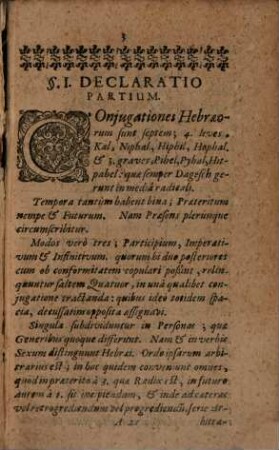 3
§. I. DECLARATIO
PARTIUM.
Conjugationes Hebræo-
rum sunt septem; 4. leves.
Kal, Niphal, Hiphil, Hophal,
& 3. graves, Pihel, Pyhal, Hit-
pahel: quæ semper Dagesch ge-
runt in mediâ radicali.
Tempora tantùm habent bina; Præteritum
nempe & Futurum. Nam Præsens plerunque
circumscribitur.
Modos verò tres; Participium, Imperati-
vum & Infinitivum. quorum hi duo posteriores
cum ob conformitatem copulari possint, relin-
quuntur saltem Quatuor, in unâ qualibet con-
jugatione tractanda: quibus ideo totidem spa-
cia, decussatim opposita assignavi.
Singula subdividuntur in Personas; quæ
Generibus quoque differunt. Nam & in verbis
Sexum distinguunt Hebræi. Ordo ipsarum arbi-
trarius est; in hoc quidem conveniunt omnes,
quod in præterito à 3. quæ Radix est, in futuro
autem à 1. sit incipiendum, & inde ad cæteras
vel retrogrediendum vel progrediendum. serie
A 2